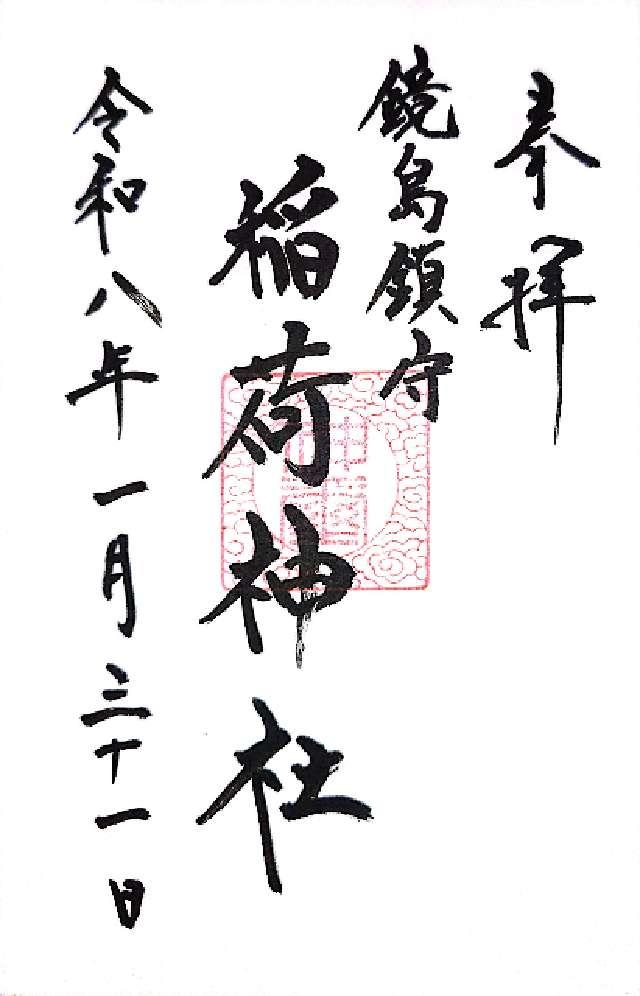 奉拝
鏡島鎮守
稲荷神社
令和八年一月三十一日